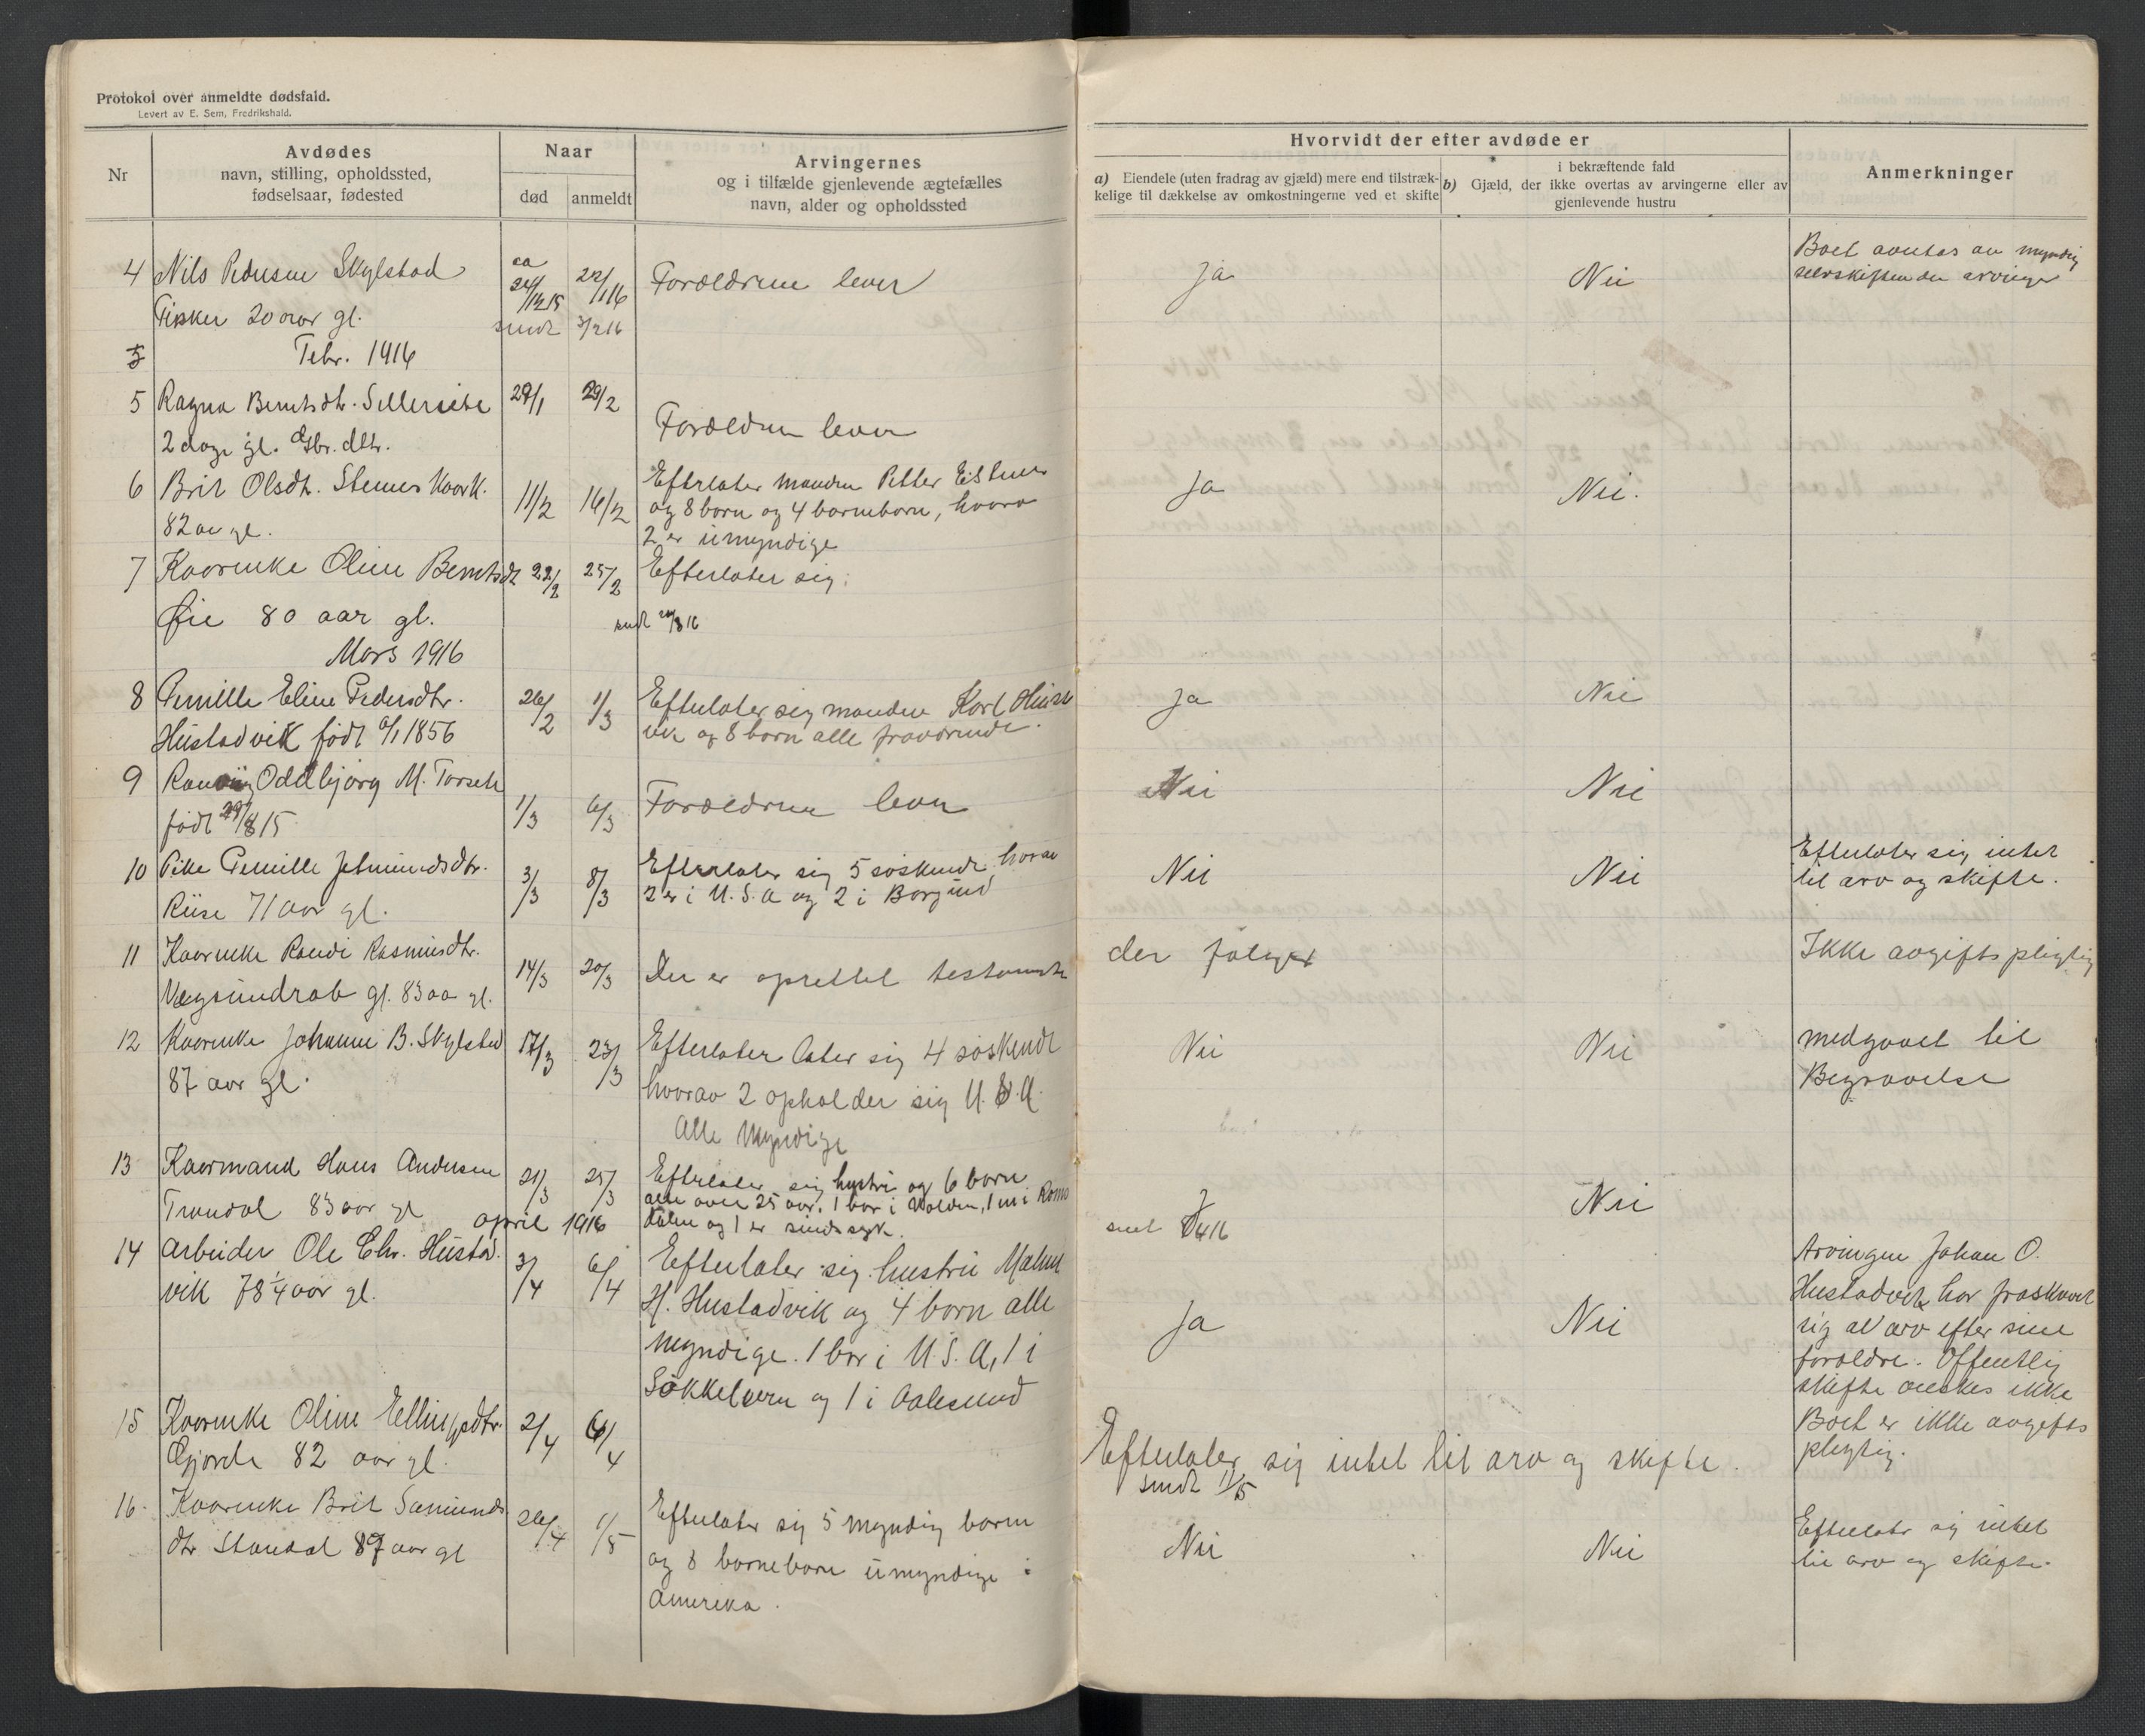 Protokol over anmeldte dødsfald.
Levert av E. Sem, Fredrikshald.
Nr
Avdødes
navn, stilling, opholdssted,
fødselsaar, fødested
Naar
død
anmeldt
Arvingernes
og i tilfælde gjenlevende ægtefælles
navn, alder og opholdssted
Hvorvidt der efter avdøde er
a) Eiendele (uten fradrag av gjæld) mere end tilstræk-
kelige til dækkelse av omkostningerne ved et skifte
i bekræftende fald
b) Gjæld, der ikke overtas av arvingerne eller av
gjenlevende hustru
Anmerkninger
4 Nils Pedersen Skylstad ca 24/12 15 22/1 16 Forældrene lever Ja Nei Boet av myndig
Fisker 20 aar gl. sendt 3/2 16 selvskiftende arvinger
5 Febr. 1916
5 Ragna Berntsdtr. 29/1 29/2
2 dage gl. Gbr. dtr. Forældrene lever
6 Brit Olsdt. Stennes Kaark. 11/2 16/2 Efterlater manden Petter Ja Nei.
82 aar gl. og 8 born og 4 barneborn, hvorav
2 er umyndige
7 Kaarenke Oline Berntsdt 22/2 25/2 Efterlater sig:
Øie 80 aar gl. sendt 20/3 16
Mars 1916
8 Pernille Eline Pedersdtr. 26/2 1/3 Efterlater sig manden Karl Husta Ja Nei
Hustadvik født 6/1 1856 vik og 8 born alle fraværende.
9 Oddbjørg M. 1/3 6/3 Forældrene lever Nei Nei
født 29/8 15
10 Pike Pernille Jetmundsdtr. 3/3 8/3 Efterlater sig 5 søskende, hvorav Nei Nei Efterlater sig intet
Riise 71 aar gl. 2 er i U.S.A og 2 i Borgund til arv og skifte.
11 Kaarenke Randi Rasmusdtr. 14/3 20/3 Der er oprettet testamente der følger Ikke avgiftspligtig
Vegsundrab gl. 83 aa gl.
12 Kaarenke Johanne B. Skylstad 17/3 23/3 Efterlater later sig 4 søskende Nei Nei medgaaet til
87 aar gl. hvorav 2 opholder sig U.S.A. Begravelse
Alle Myndige
13 Kaarmand Hans Andersen 21/3 25/3 Efterlater sig hustru og 6 born Nei
Trandal 83 aar gl alle over 25 aar. 1 bor i Volden, 1 en i Roms
april 1916 dalen og 1 er sindssyk. sent 8/4 16
14 Arbeider Ole Chr. Hustad. 3/4 6/4 Efterlater sig hustru Malene Ja Nei Arvingen Johan O.
vik 78 1/4 aar gl. H. Hustadvik og 4 born alle Hustadvik har fraskrevet
myndige. 1 bor i U.S.A, 1 i sig al arv efter sine
Søkkelven og 1 i Aalesund forældre. Offentlig
skifte ønskes ikke
Boet er ikke avgifts
pligtig.
15 Kaarenke Oline Ellingsdtr. 2/4 6/4 Efterlater sig intet til arv og skifte.
Gjørde 82 aar gl sendt 1/5
16. Kaarenke Brit Sæmunds 26/4 1/5 Efterlater sig 5 myndig born Nei Nei Efterlater sig intet
dtr Standal 87 aar gl og 8 barneborn umyndige i til arv og skifte.
Amerika.